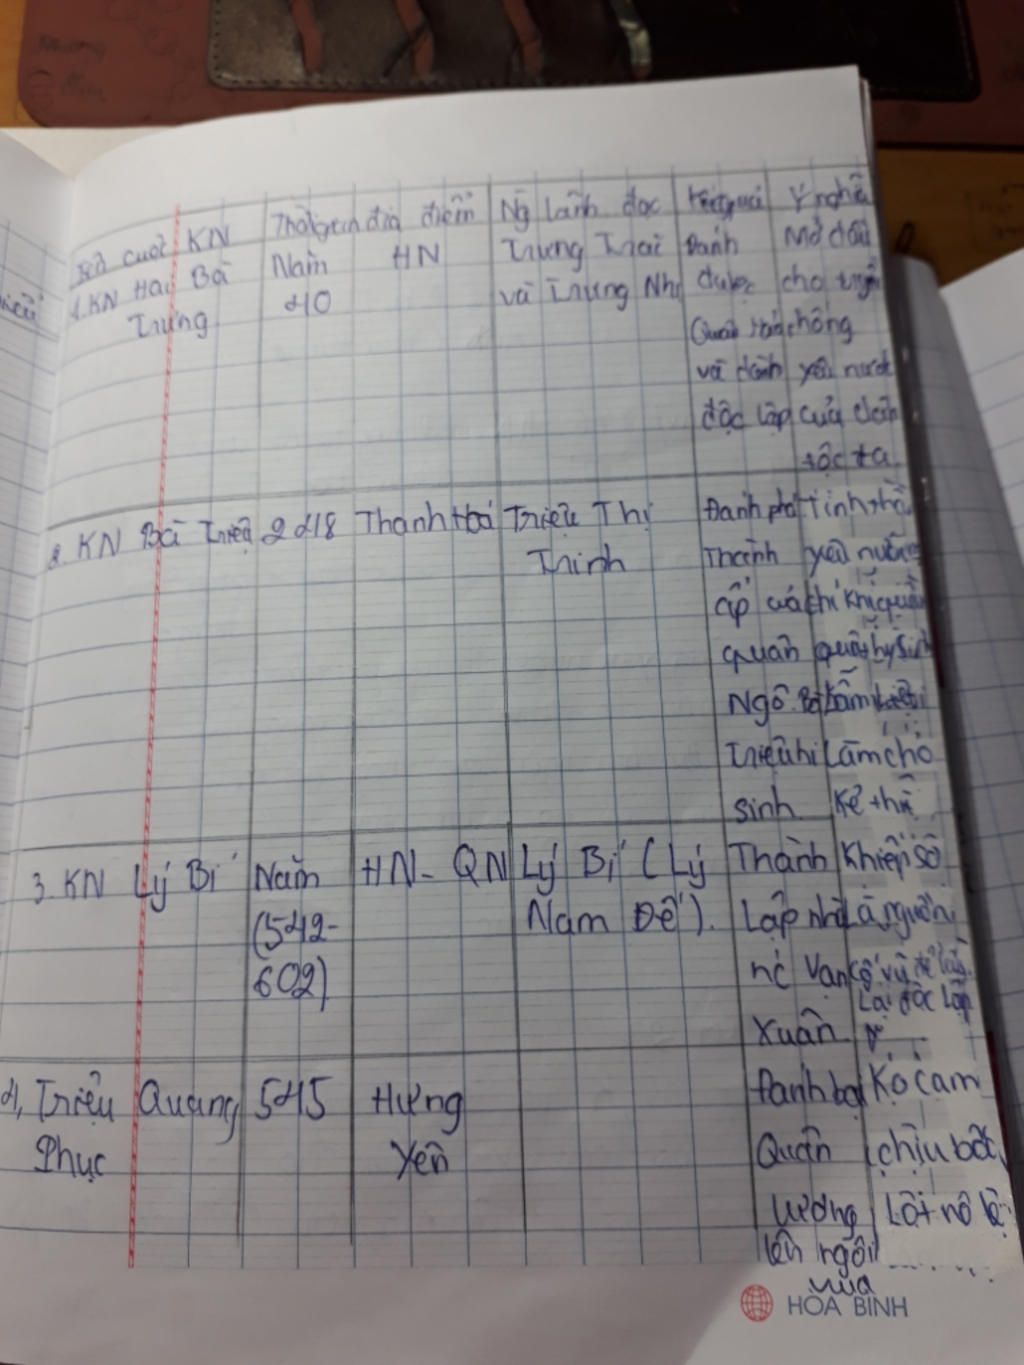 cuộc KN Thời gian địa điểm Ng lãnh đạo Kết quả Ý nghĩa
1. KN Hai Bà Trưng Năm 40 HN Trưng Trắc và Trưng Nhị
Đánh được Quân Hán và dành độc lập
Mở đầu cho chống yêu nước của dân tộc ta
2. KN Bà Triệu 248 Thanh Hoá Triệu Thị Trinh
Đánh phá Thành ấp của quân Ngô. Bà Triệu hi sinh
Tinh thần yêu nước chí khí quất hy sinh Làm cho kẻ thù
3. KN Lý Bí Năm (542-602) HN - QN Lý Bí (Lý Nam Đế).
Thành Lập nhà nc Vạn Xuân
Khiếp sợ Là nguồn cổ vũ để lấy Lại độc lập
4, Triệu Quang Phục 545 Hưng Yên
Đánh bại Quân Lương lên ngôi vua
Ko cam chịu bóc Lột nô lệ
HÒA BÌNH